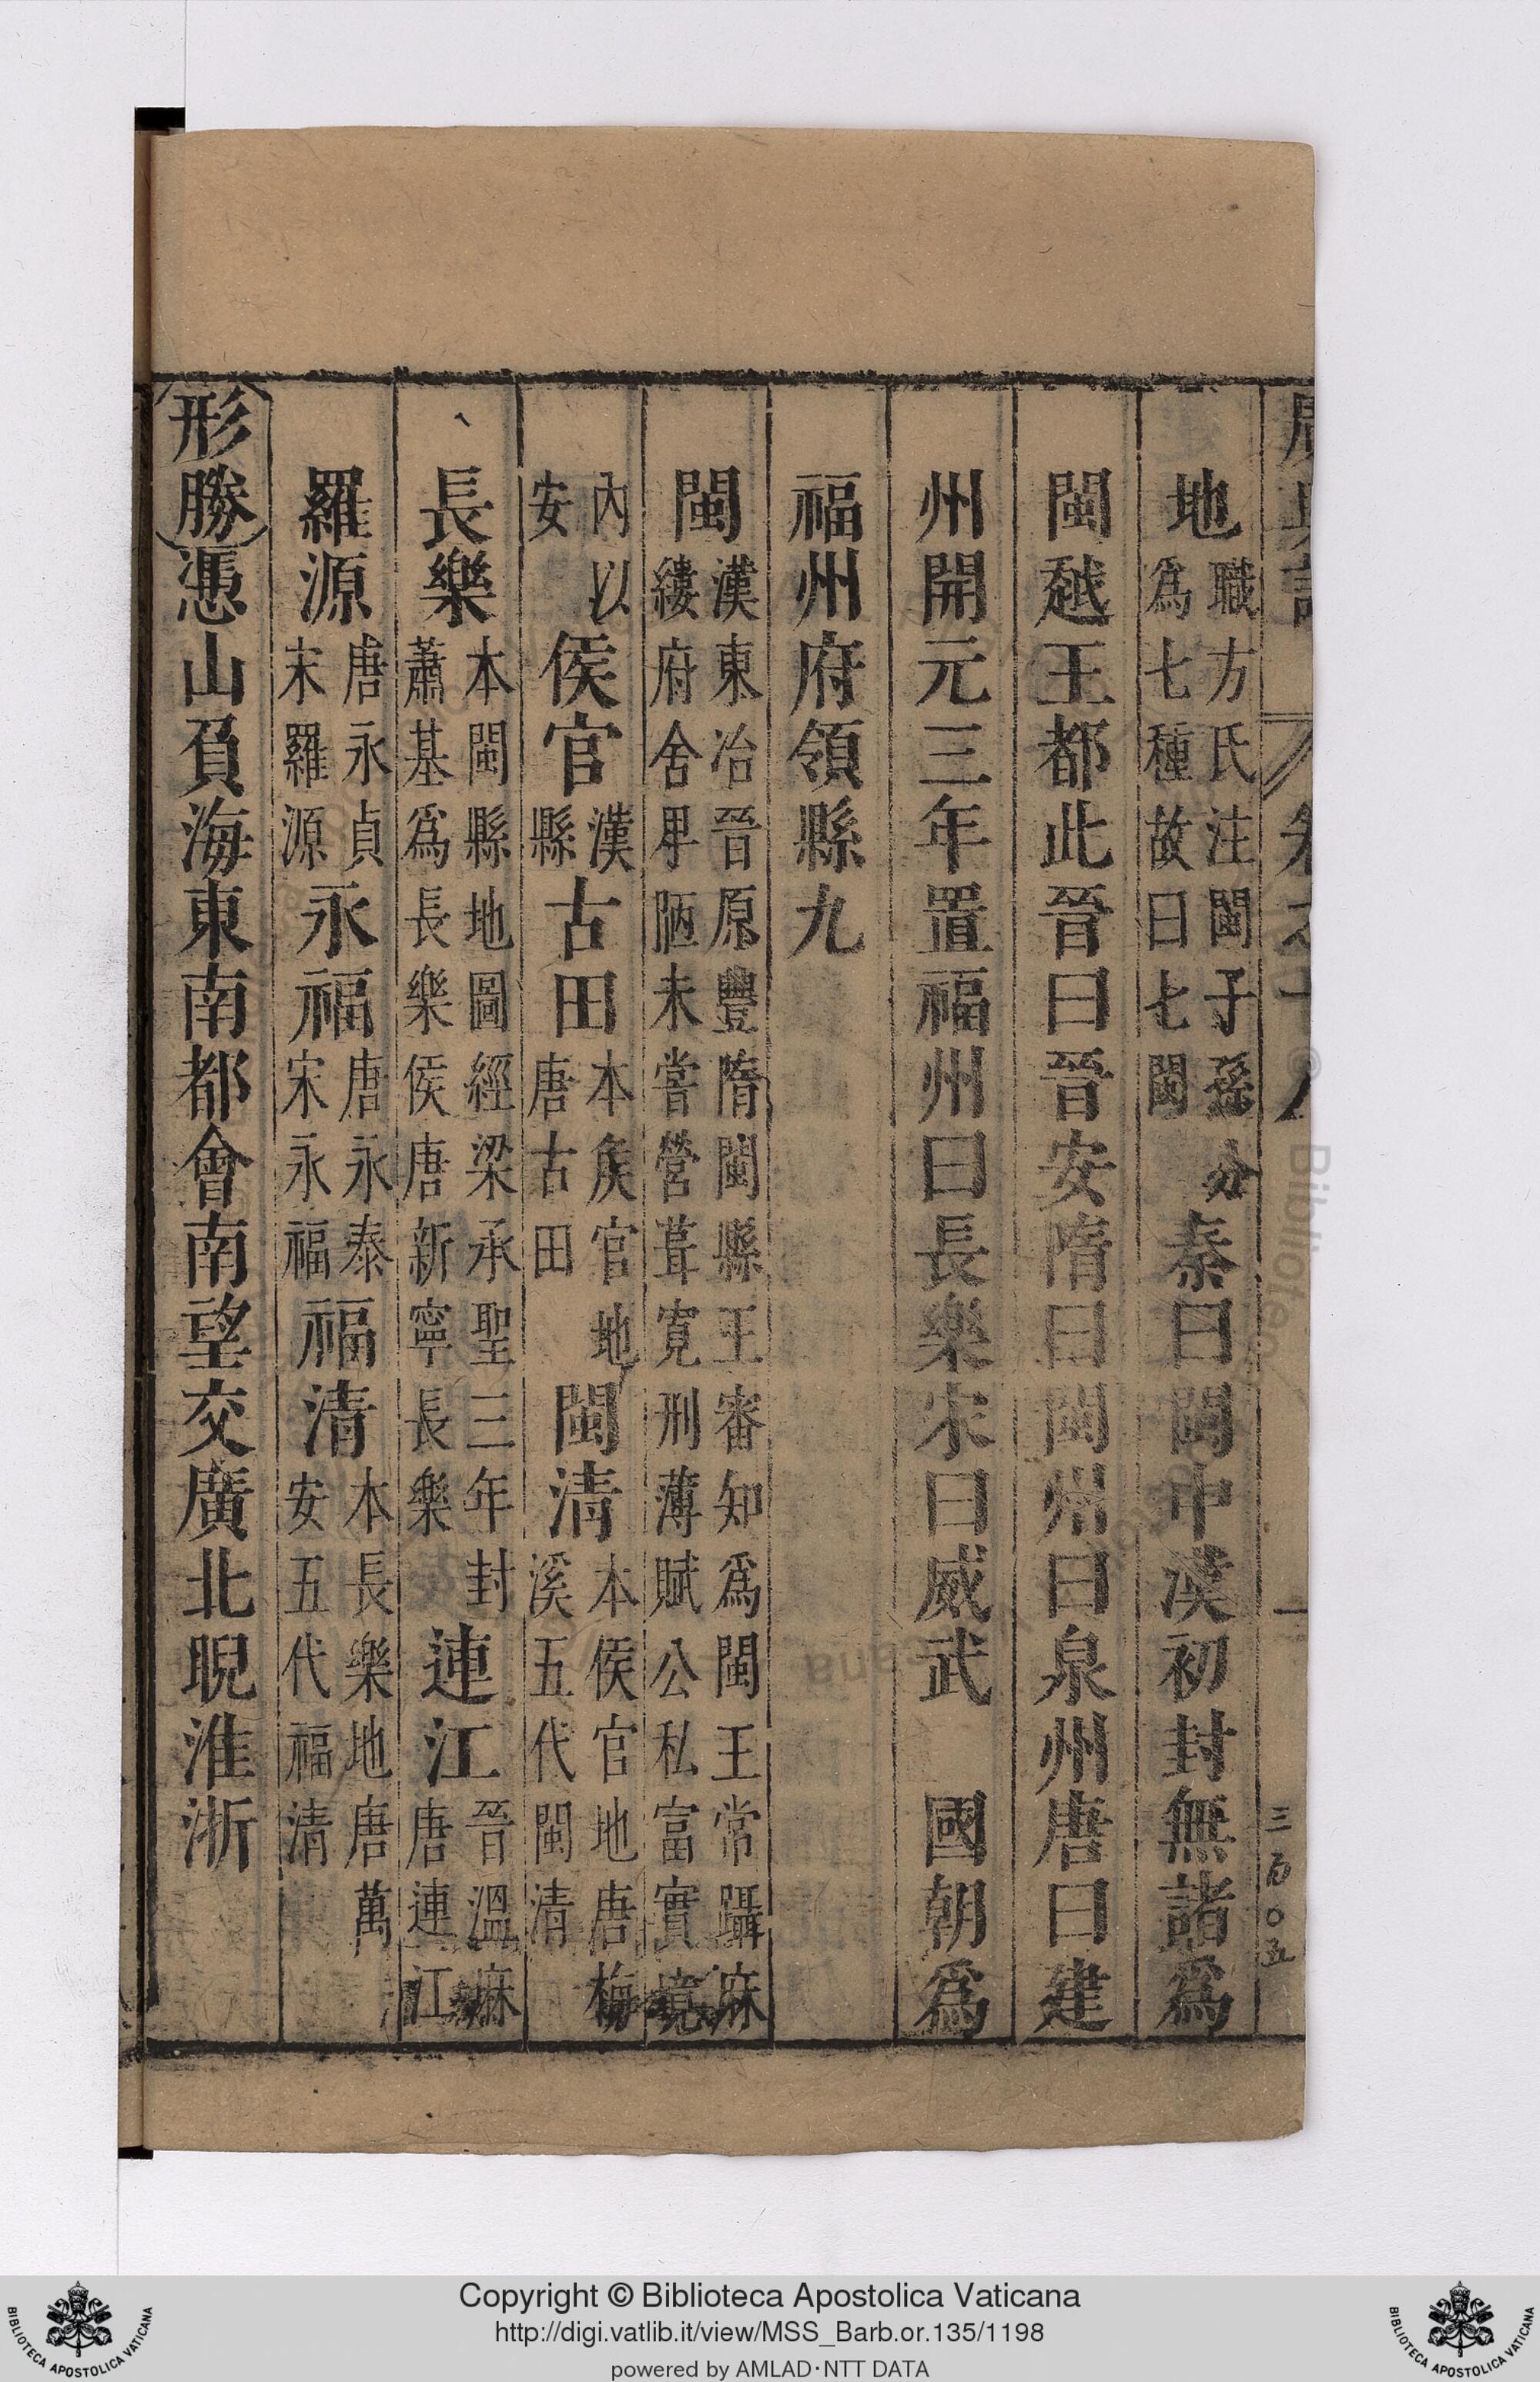 地職方氏注閩子孫分爲七種故曰七閩秦曰閩中漢初封無諸爲
閩越王都此晉曰晉安隋曰閩州曰泉州唐曰建
州開元三年置福州曰長樂宋曰威武 國朝爲
福州府領縣九
閩漢東冶晉原豐隋閩縣王審知爲閩王常躡麻縷府舍卑陋未嘗營葺寬刑薄賦公私富實境
內以安侯官漢縣古田本矦官地唐古田閩清本侯官地唐梅溪五代閩清
長樂本閩縣地圖經梁承聖三年封蕭基爲長樂侯唐新寧長樂連江晉溫麻唐連江
羅源唐永貞宋羅源永福唐永泰宋永福福清本長樂地唐萬安五代福清
形勝憑山負海東南都會南望交廣北睨淮浙
三百〇五
Copyright © Biblioteca Apostolica Vaticana
http://digi.vatlib.it/view/MSS_Barb.or.135/1198
powered by AMLAD·NTT DATA
BIBLIOTECA APOSTOLICA VATICANA
BIBLIOTECA APOSTOLICA VATICANA